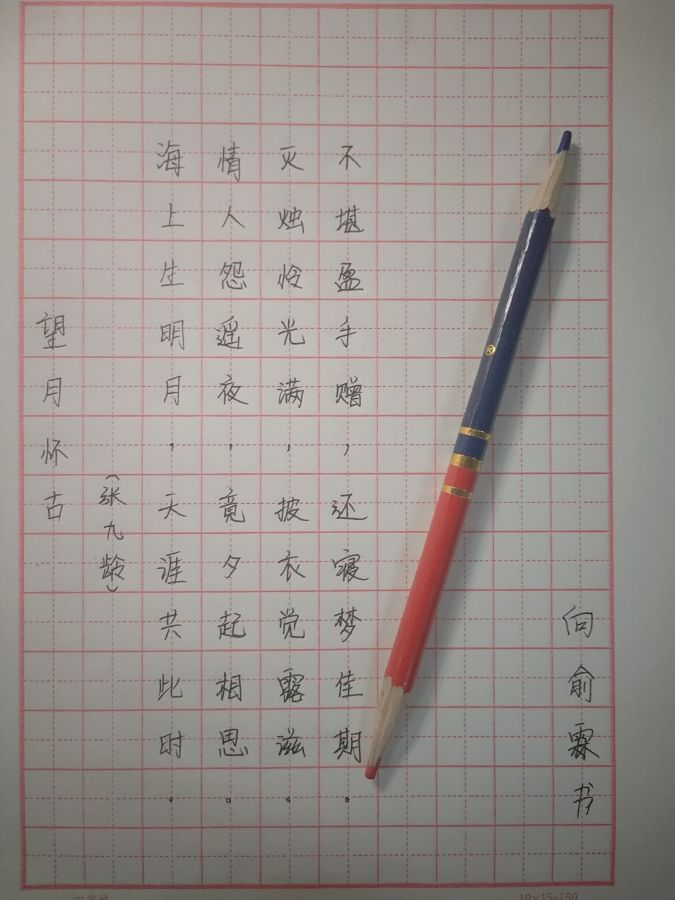 望月怀古
(张九龄)
海上生明月，天涯共此时。
情人怨遥夜，竟夕起相思。
灭烛怜光满，披衣觉露滋。
不堪盈手赠，还寝梦佳期。
向俞霖书
10×15=150